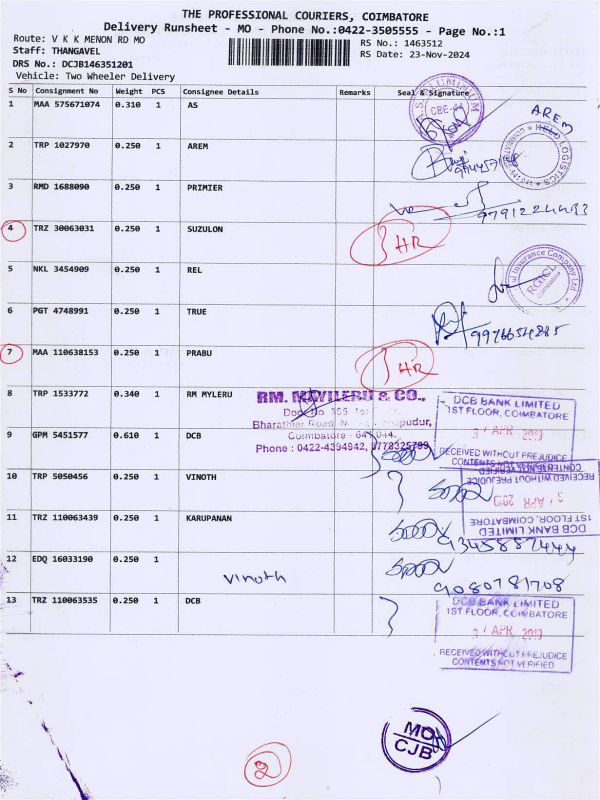 THE PROFESSIONAL COURIERS, COIMBATORE
Delivery Runsheet - MO - Phone No.:0422-3505555 - Page No.:1
Route: V K K MENON RD MO
RS No.: 1463512
Staff: THANGAVEL
RS Date: 23-Nov-2024
DRS No.: DCJB146351201
Vehicle: Two Wheeler Delivery
S No Consignment No Weight PCS Consignee Details Remarks Seal & Signature
1 MAA 575671074 0.310 1 AS
CBE
AREM
2 TRP 1027970 0.250 1 AREM
LOGISTICS
3 RMD 1688090 0.250 1 PRIMIER
4 TRZ 30063031 0.250 1 SUZULON
HR
5 NKL 3454909 0.250 1 REL
Insurance Company Ltd
RGICL
6 PGT 4748991 0.250 1 TRUE
9976654285
7 MAA 110638153 0.250 1 PRABU
HR
8 TRP 1533772 0.340 1 RM MYLERU
RM. MAYILERU & CO.,
Bharathiar Road,
Coimbatore - 641 044.
Phone : 0422-4394942, 9778325799
DCB BANK LIMITED
1ST FLOOR, COIMBATORE
APR 2010
RECEIVED WITHOUT PREJUDICE
CONTENTS NOT VERIFIED
9 GPM 5451577 0.610 1 DCB
10 TRP 5050456 0.250 1 VINOTH
DCB BANK LIMITED
1ST FLOOR, COIMBATORE
APR 2010
RECEIVED WITHOUT PREJUDICE
CONTENTS NOT VERIFIED
11 TRZ 110063439 0.250 1 KARUPANAN
9345887444
12 EDQ 16033190 0.250 1
vinoth
9080781708
13 TRZ 110063535 0.250 1 DCB
DCB BANK LIMITED
1ST FLOOR, COIMBATORE
APR 2010
RECEIVED WITHOUT PREJUDICE
CONTENTS NOT VERIFIED
MO
CJB
2